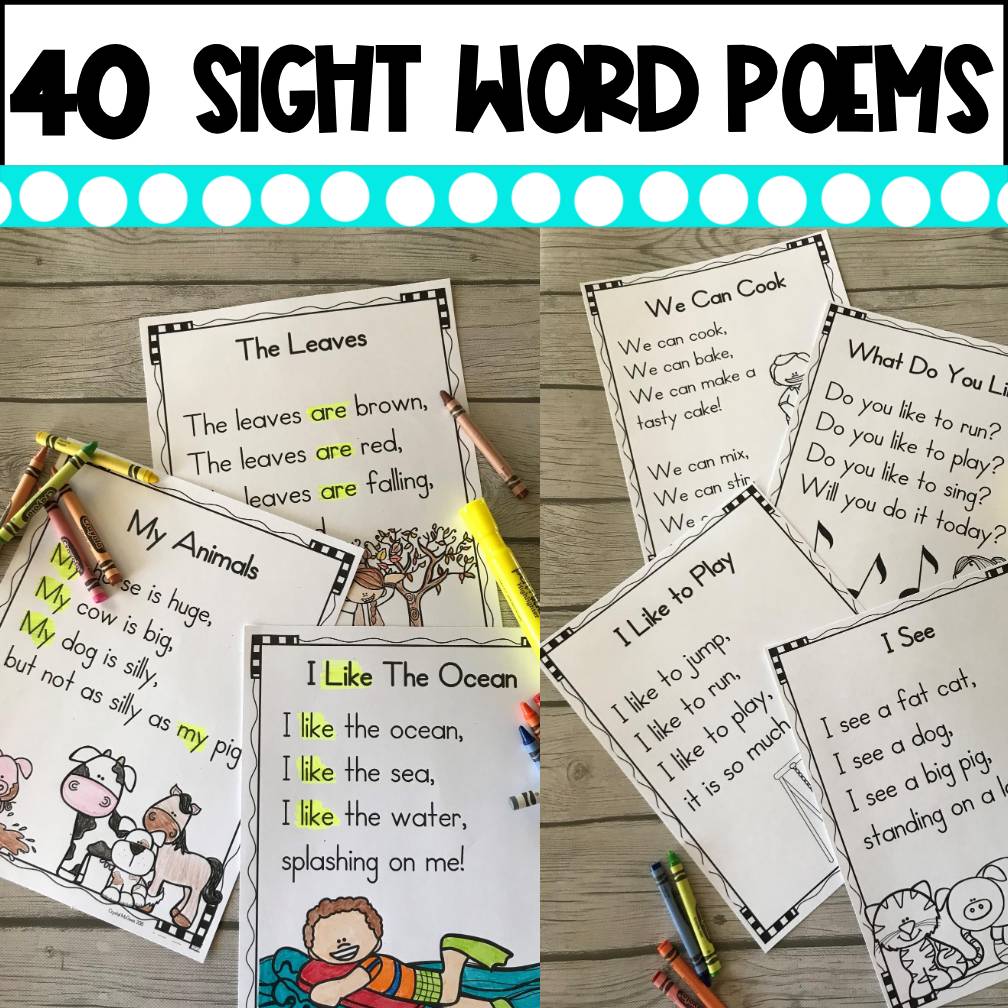 40 SIGHT WORD POEMS
The Leaves
The leaves are brown,
The leaves are red,
leaves are falling,
My Animals
My is huge,
My cow is big,
My dog is silly,
but not as silly as my pig
I Like The Ocean
I like the ocean,
I like the sea,
I like the water,
splashing on me!
We Can Cook
We can cook,
We can bake,
We can make a
tasty cake!
We can mix,
We can stir
We
What Do You
Do you like to run?
Do you like to play?
Do you like to sing?
Will you do it today?
I Like to Play
I like to jump,
I like to run,
I like to play,
it is so much
I See
I see a fat cat,
I see a dog,
I see a big pig,
standing on a